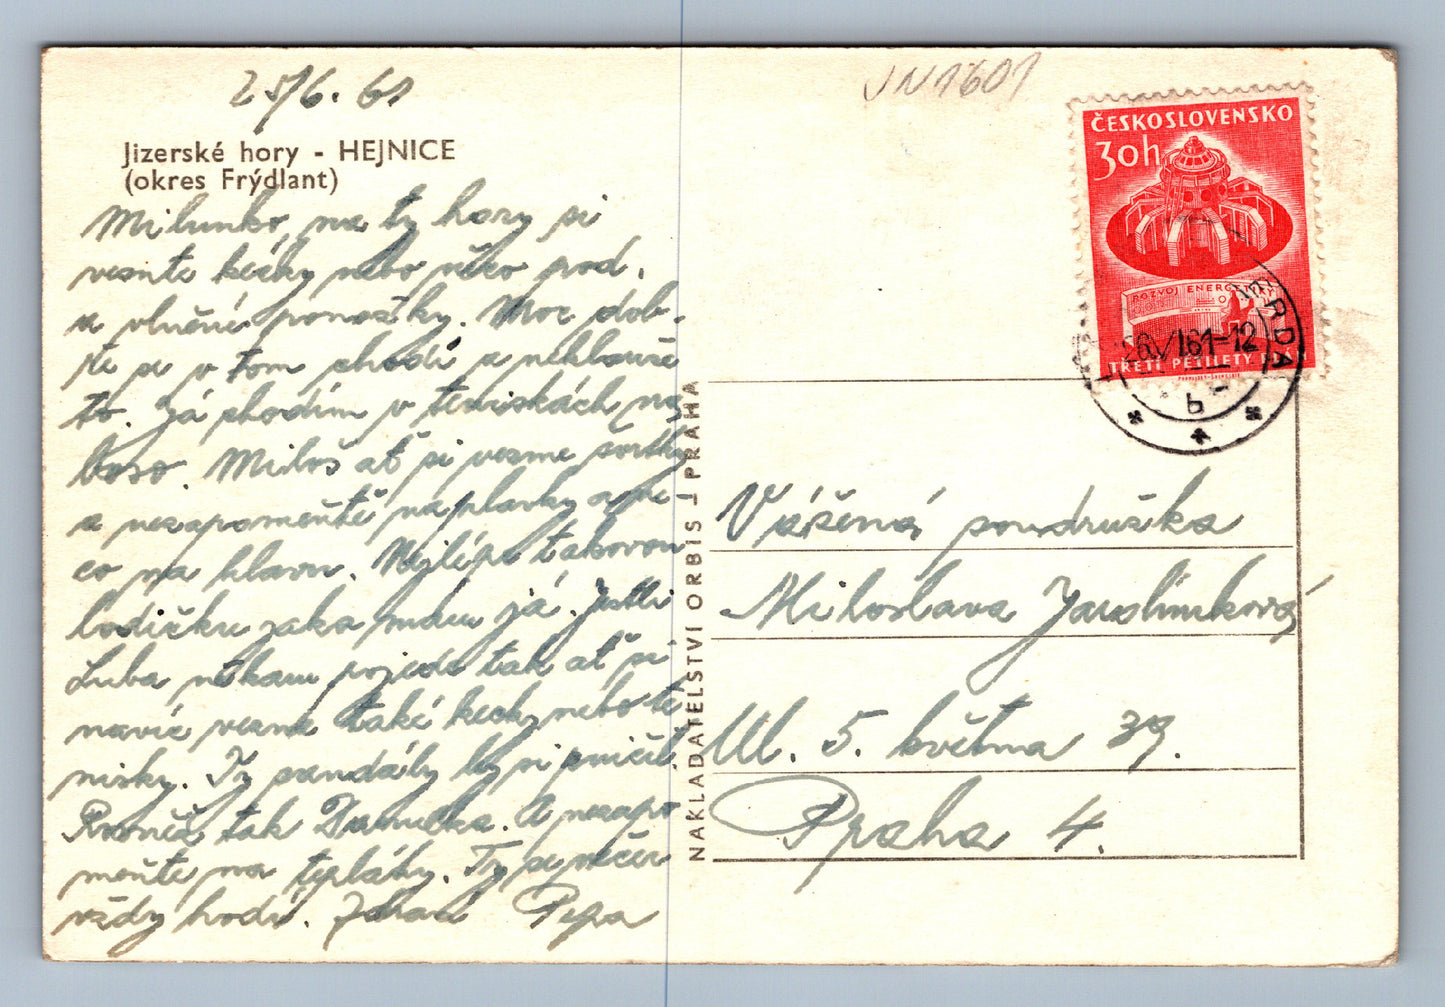 25/6. 61
Jizerské hory - HEJNICE
(okres Frýdlant)
Milunko, na ty hory si
vesmte kecky nebo něco pod.
a vlněné ponožky. Moc dob-
ře se v tom chodí a nehlouže
to. Já chodím v teniskách na
boso. Miloš ať si vesme šortky
a nezapomeňte na plavky a ně-
co na hlavu. Nejlépe takovou
lodičku jaka mám já. Jestli
Luba někam pojede tak ať si
navíc vesme také kecky nebo te
nisky. Ty sandály by si zničil.
Rovněž tak Danuška. A nezapo
meňte na tepláky. Ty se večer
vždy hodí. Zdraví Pepa
NAKLADATELSTVÍ ORBIS - PRAHA
JN1601
ČESKOSLOVENSKO
30h
ROZVOJ ENERGETIKY
TŘETÍ PĚTILETÝ PLÁN
26.VI.61-12
b
Vážená soudružka
Miloslava Jarolímková
Ul. 5. května 39.
Praha 4.